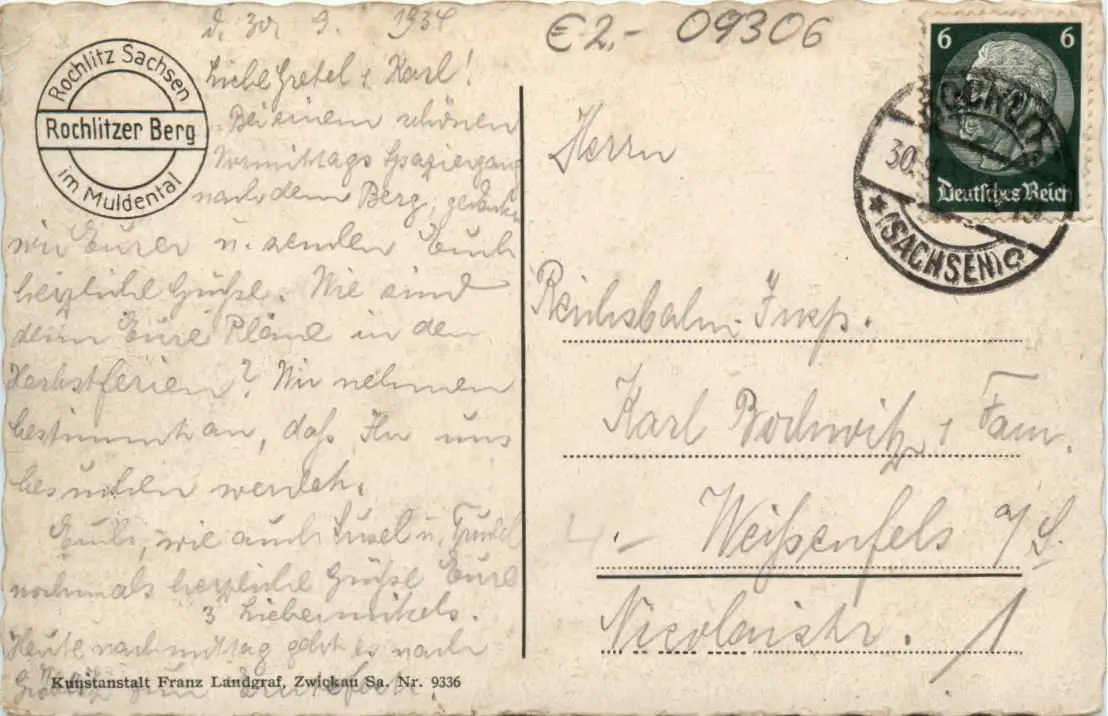 d. 30. 9. 1934
€ 2,- 09306
Rochlitz Sachsen
Rochlitzer Berg
im Muldental
Liebe Gretel u. Karl!
Bei einem schönen
Vormittags Spaziergang
nach dem Berg, gedenken
wir Eurer u. senden Euch
herzliche Grüße. Wie sind
denn Eure Pläne in den
Herbstferien? Wir nehmen
bestimmt an, daß Ihr uns
besuchen werdet.
Euch, wie auch Susel u. Trudel
nochmals herzliche Grüße Eure
3 Liebernickels.
Heute nachmittag geht es nach
zum
Kunstanstalt Franz Landgraf, Zwickau Sa. Nr. 9336
6 6
Deutsches Reich
ROCHLITZ
30.9.
(SACHSEN) c
Herrn
Reichsbahn-Insp.
Karl Bochwitz u. Fam.
4.- Weißenfels a/S.
Nicolaistr. 1